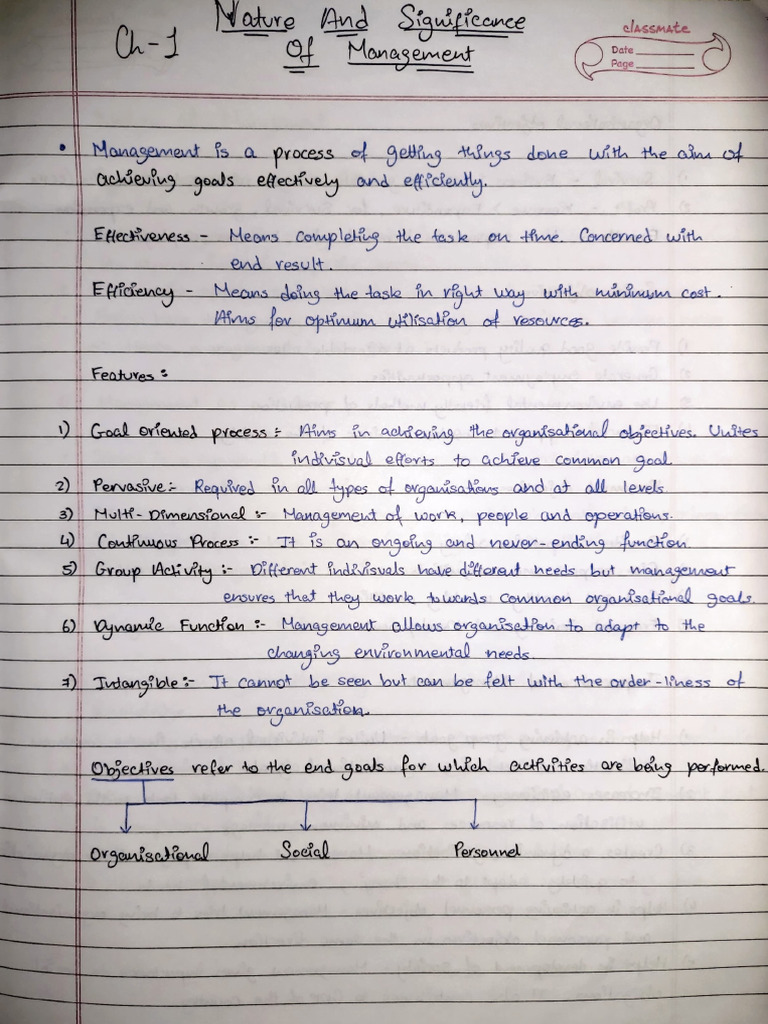 Ch-1
Nature And Significance
Of Management
classmate
Date
Page
• Management is a process of getting things done with the aim of
achieving goals effectively and efficiently.
Effectiveness - Means completing the task on time. Concerned with
end result.
Efficiency - Means doing the task in right way with minimum cost.
Aims for optimum utilisation of resources.
Features :
1) Goal oriented process :- Aims in achieving the organisational objectives. Unites
indivisual efforts to achieve common goal.
2) Pervasive:- Required in all types of organisations and at all levels
3) Multi-Dimensional :- Management of work, people and operations.
4) Continuous Process :- It is an ongoing and never-ending function.
5) Group Activity :- Different indivisuals have different needs but management
ensures that they work towards common organisational goals.
6) Dynamic Function :- Management allows organisation to adapt to the
changing environmental needs.
7) Intangible:- It cannot be seen but can be felt with the order-liness of
the organisation.
Objectives refer to the end goals for which activities are being performed.
Organisational Social Personnel